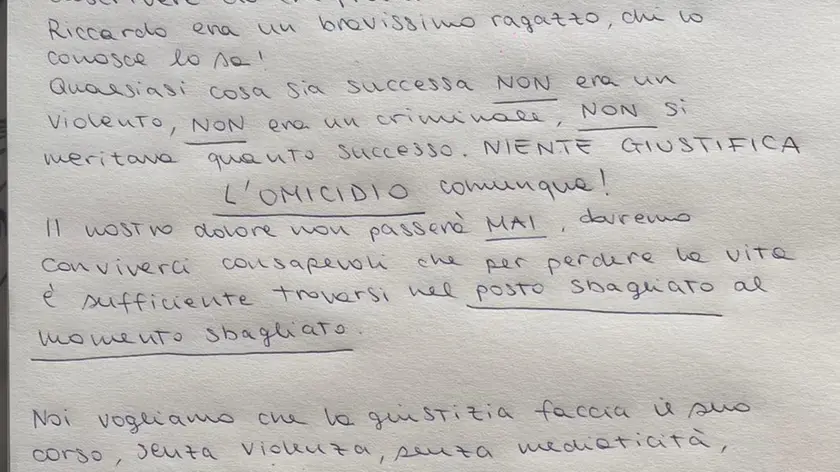 Riccardo era un bravissimo ragazzo, chi lo
conosce lo sa!
Qualsiasi cosa sia successa NON era un
violento, NON era un criminale, NON si
meritava quanto successo. NIENTE GIUSTIFICA
L'OMICIDIO comunque!
Il nostro dolore non passerà MAI, dovremo
conviverci consapevoli che per perdere la vita
è sufficiente trovarsi nel posto sbagliato al
momento sbagliato.
Noi vogliamo che la giustizia faccia il suo
corso, senza violenza, senza mediaticità,